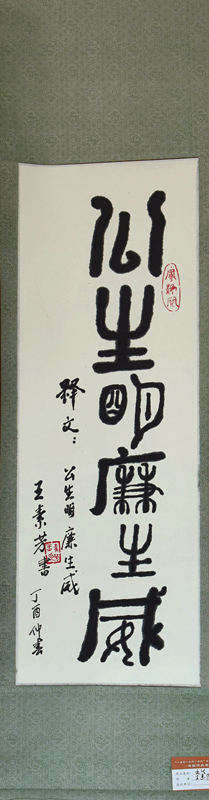 公生明廉生威
释文：公生明廉生威
王素芳書
丁酉仲春